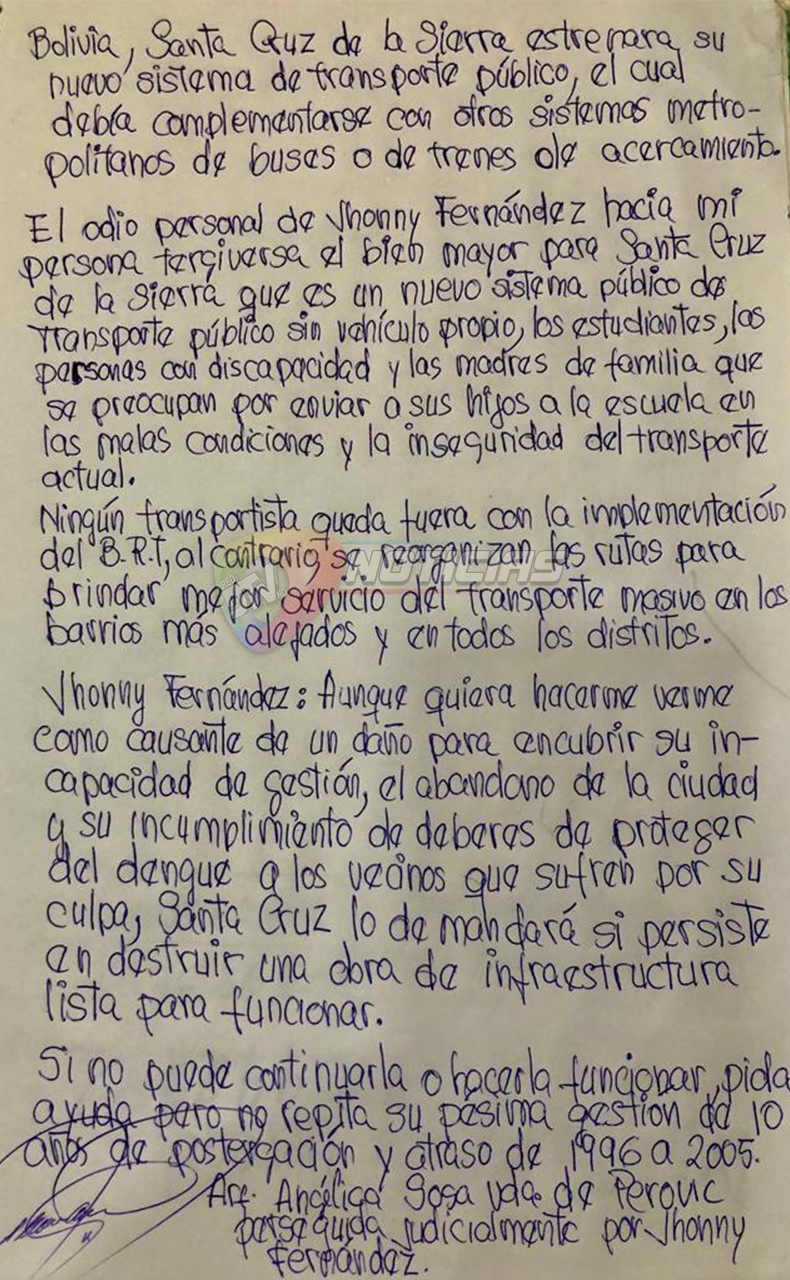 Bolivia, Santa Cruz de la Sierra estrenara su
nuevo sistema de transporte público, el cual
debía complementarse con otros sistemas metro-
politanos de buses o de trenes de acercamiento.
El odio personal de Jhonny Fernández hacia mi
persona tergiversa el bien mayor para Santa Cruz
de la Sierra que es un nuevo sistema público de
transporte público sin vehículo propio, los estudiantes, las
personas con discapacidad y las madres de familia que
se preocupan por enviar a sus hijos a la escuela en
las malas condiciones y la inseguridad del transporte
actual.
Ningún transportista queda fuera con la implementación
del B.R.T, al contrario, se reorganizan las rutas para
brindar mejor servicio del transporte masivo en los
barrios más alejados y en todos los distritos.
NOTICIAS
Jhonny Fernández: Aunque quiera hacerme verme
como causante de un daño para encubrir su in-
capacidad de gestión, el abandono de la ciudad
y su incumplimiento de deberes de proteger
del dengue a los vecinos que sufren por su
culpa, Santa Cruz lo demandará si persiste
en destruir una obra de infraestructura
lista para funcionar.
Si no puede continuarla o hacerla funcionar, pida
ayuda pero no repita su pésima gestión de 10
años de postergación y atraso de 1996 a 2005.
Arq. Angélica Sosa Vda. de Perovic
perseguida judicialmente por Jhonny
Fernández.